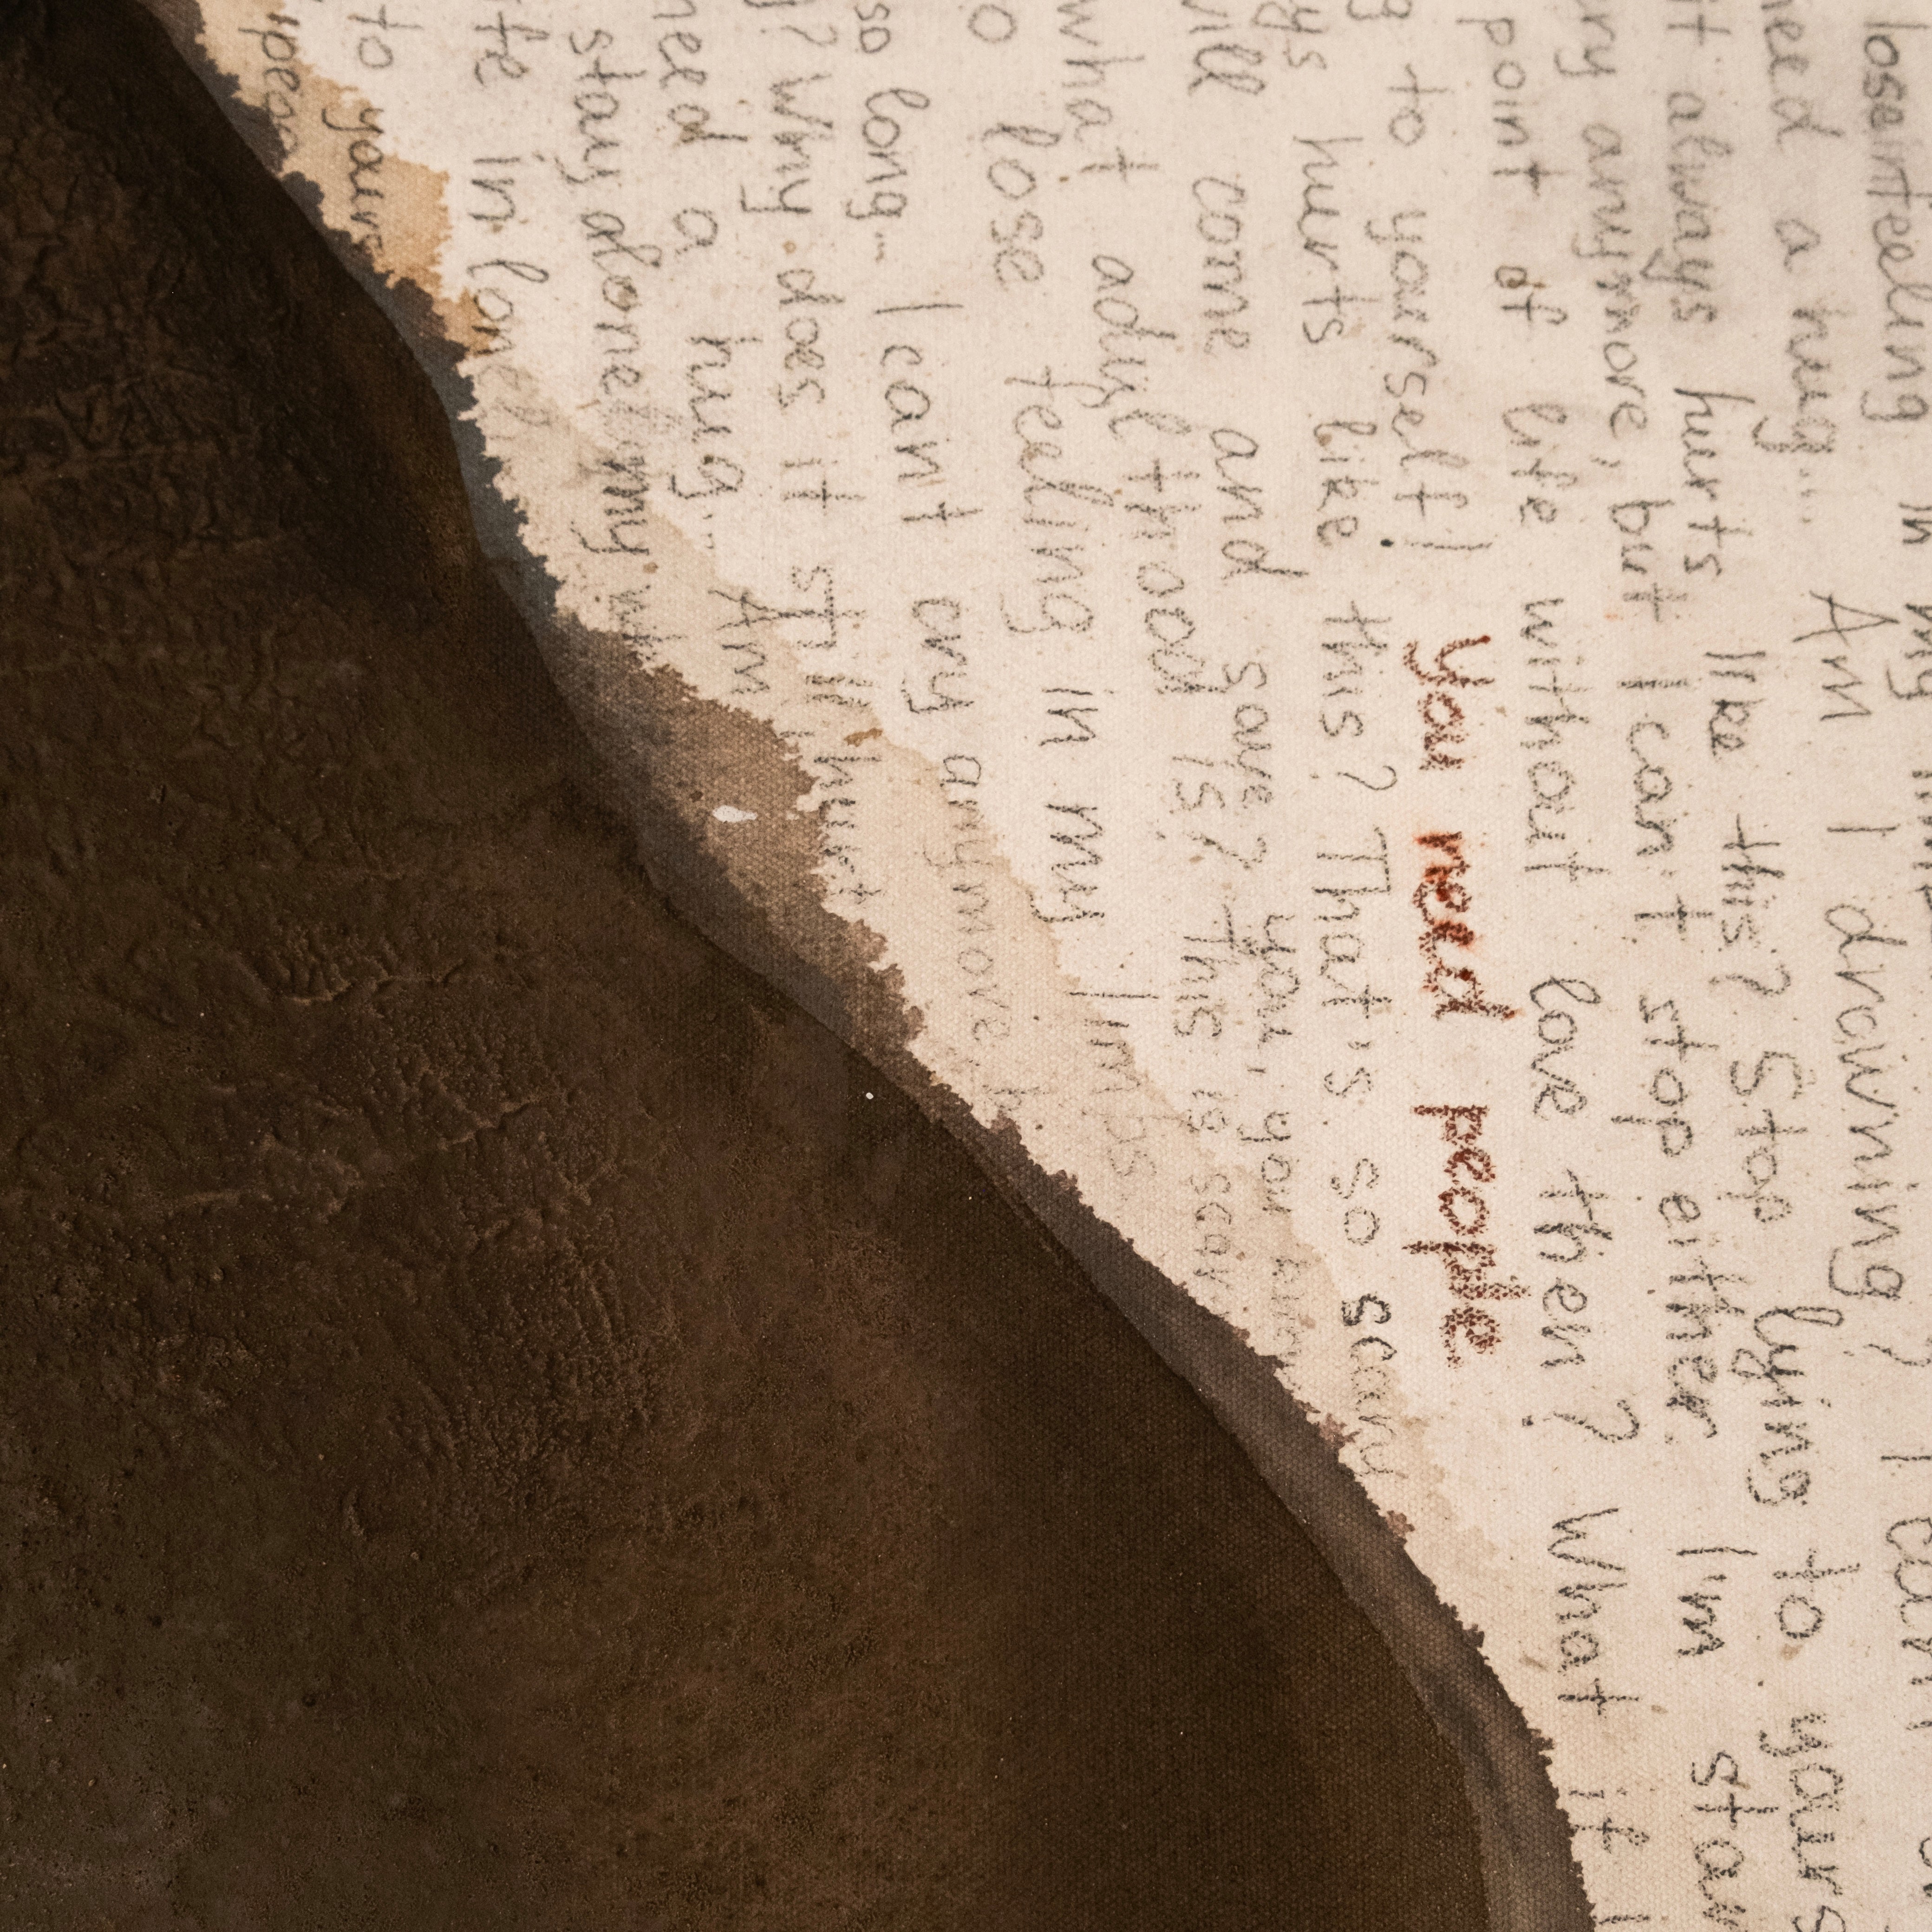 lose feeling in my
need a hug... Am I drowning? I can
it always hurts like this? Stop lying to yours
ry anymore, but I can't stop either. I'm star
point of life without love then? What if I
g to yourself! you need people
ys hurts like this? That's so scary
will come and save? you, you
what adylthood is? This is scar
o lose feeling in my limbs
so long... I cant cry anymore, b
? Why does it still hurt
need a hug... Am
stay alone my
ife in lone
to yours